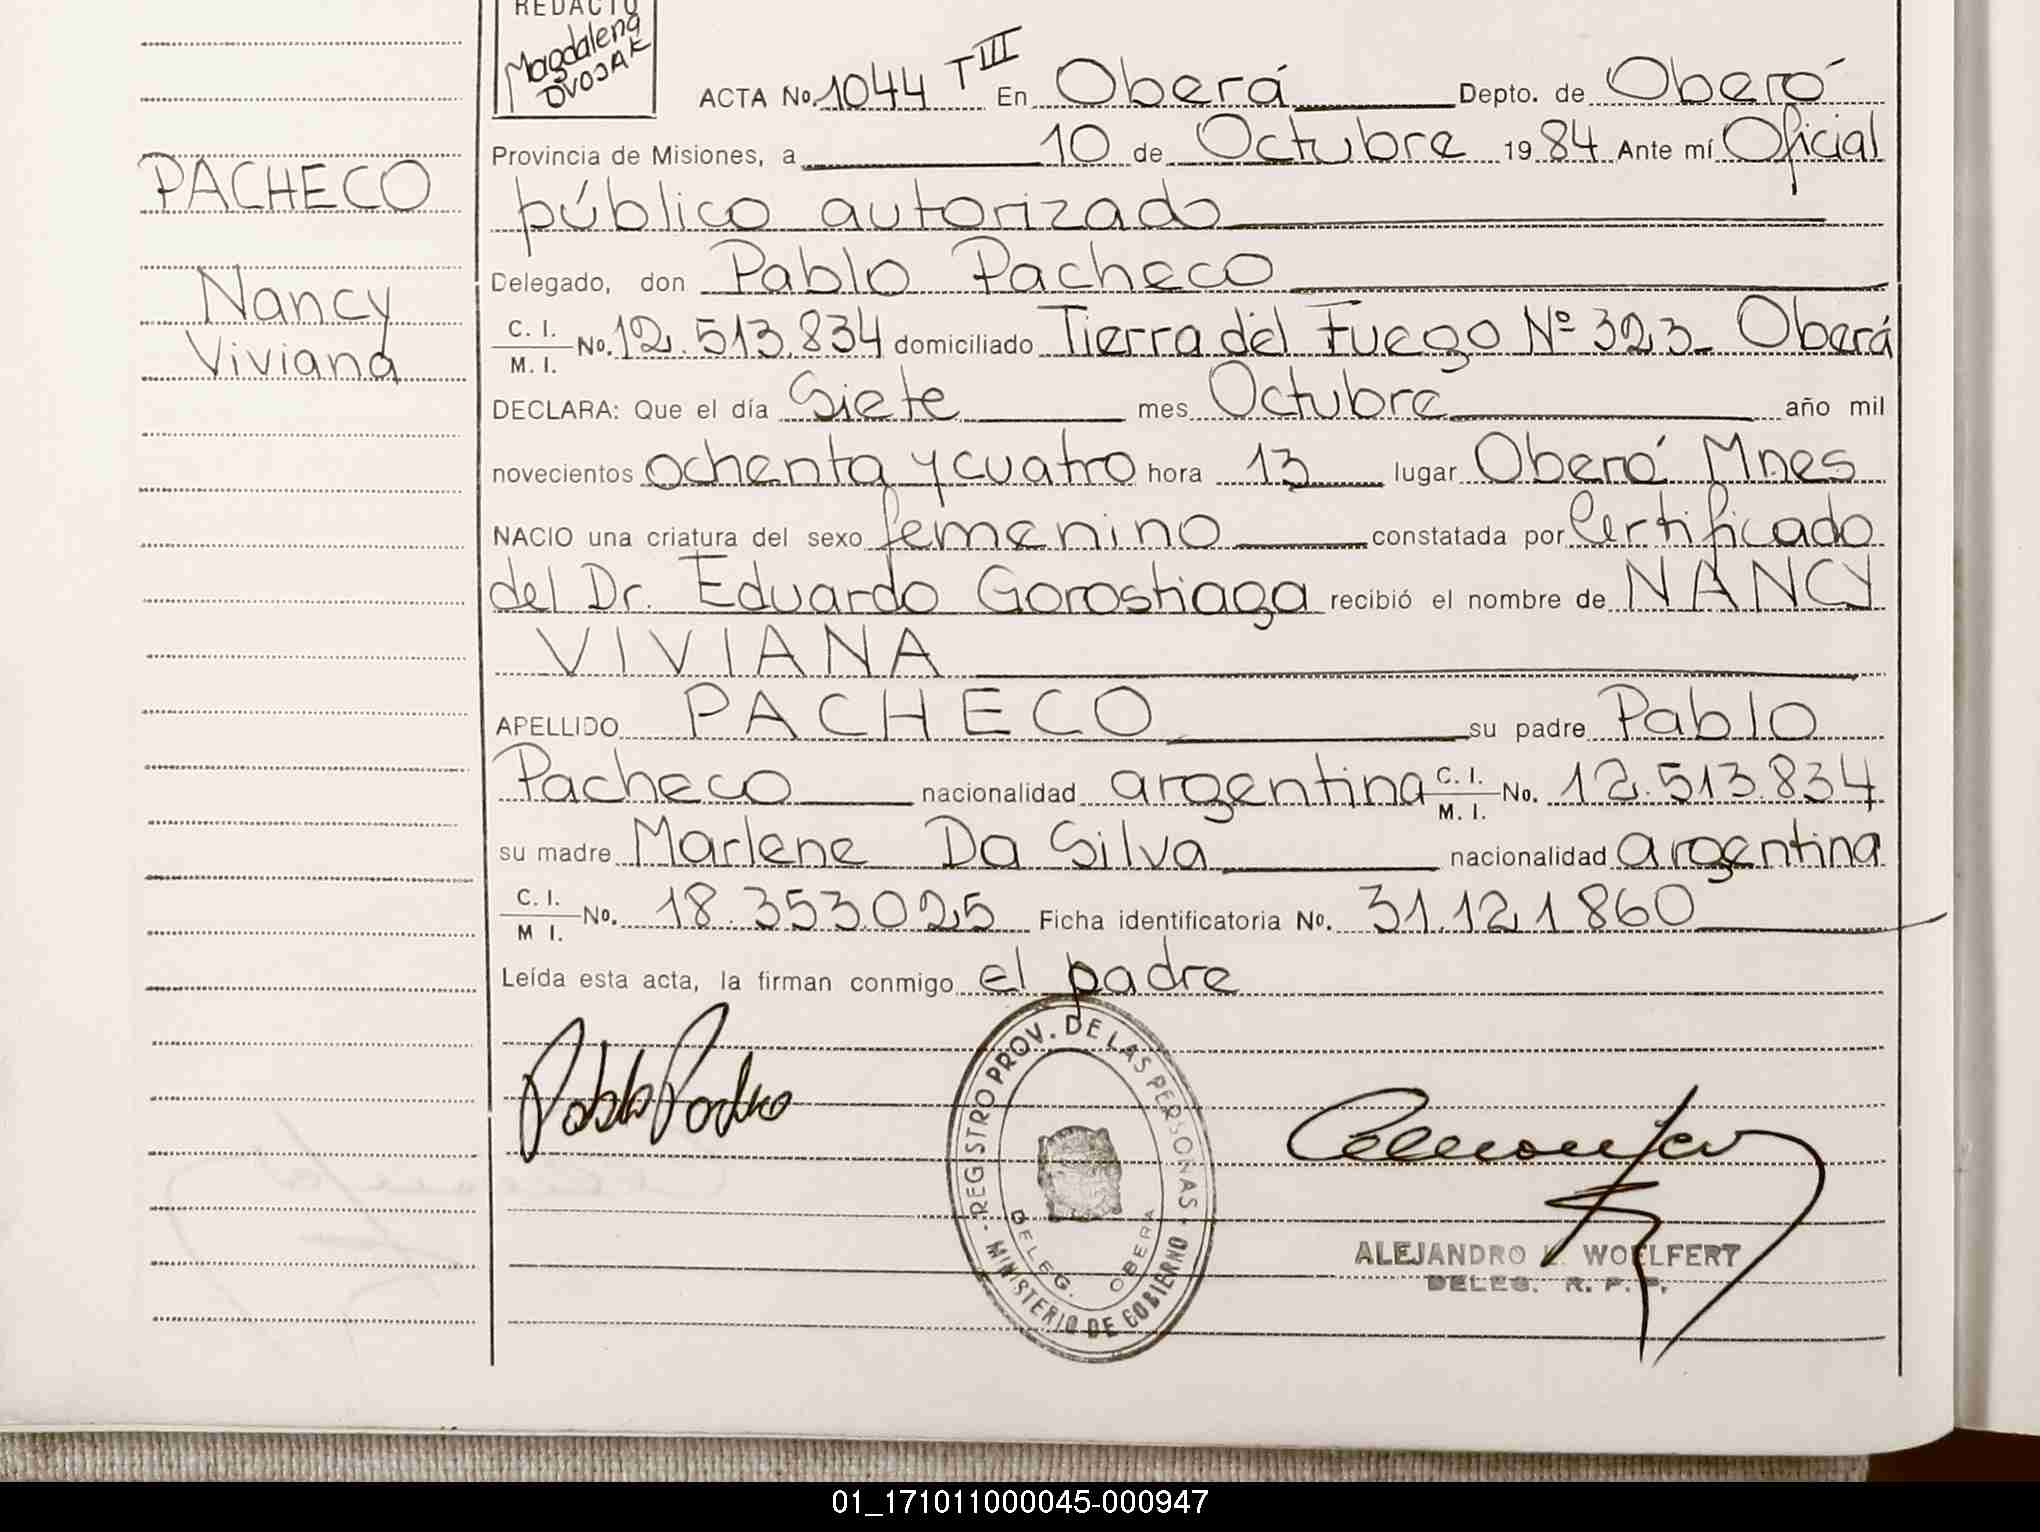 REDACTO
Magdalena
DVOJAK
ACTA No. 1044 TIII En Oberá Depto. de Oberá
Provincia de Misiones, a 10 de Octubre 1984 Ante mí Oficial
PACHECO
público autorizado
Delegado, don Pablo Pacheco
Nancy
Viviana
C. I.
M. I. No. 12.513.834 domiciliado Tierra del Fuego Nº 323 Oberá
DECLARA: Que el día Siete mes Octubre año mil
novecientos ochenta y cuatro hora 13 lugar Oberá Mnes
NACIO una criatura del sexo femenino constatada por Certificado
del Dr. Eduardo Gorostiaga recibió el nombre de NANCY
VIVIANA
APELLIDO PACHECO su padre Pablo
Pacheco nacionalidad argentina C. I. M. I. No. 12.513.834
su madre Marlene Da Silva nacionalidad argentina
C. I.
M I. No. 18.353.025 Ficha identificatoria No. 31.121.860
Leída esta acta, la firman conmigo el padre
REGISTRO PROV. DE LAS PERSONAS
DELEG. OBERA
MINISTERIO DE GOBIERNO
ALEJANDRO WOELFERT
DELEG. R. P. P.
01_171011000045-000947